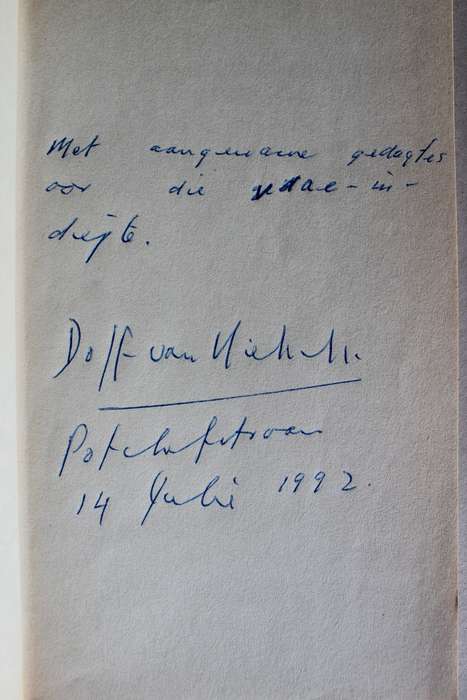 Met aangename gedagtes
oor die
digte.
Dolf van Niekerk.
Potchefstroom
14 Julie 1992.